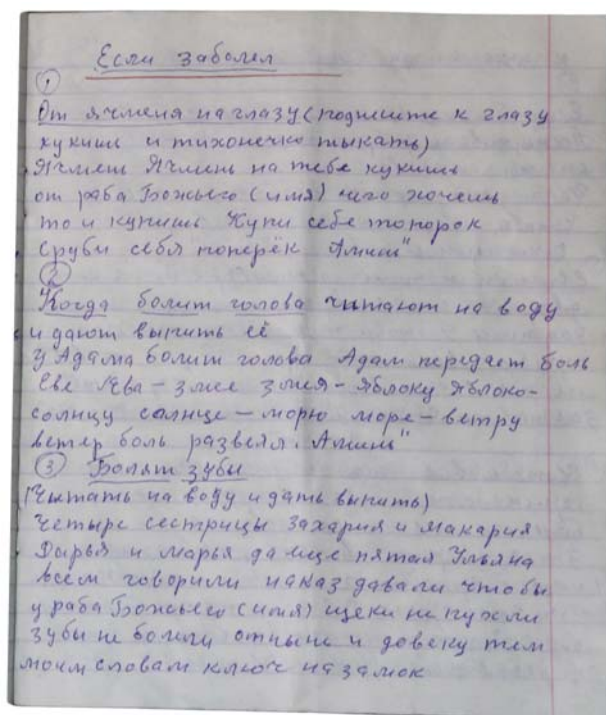 Если заболел
1
От ячменя на глазу (поднесите к глазу
кукиш и тихонечко тыкать)
Ячмень Ячмень на тебе кукишь
от раба Божьего (имя) чего хочешь
то и купишь Купи себе топорок
Сруби себя поперёк Аминь"
2
Когда болит голова читают на воду
и дают выпить её
У Адама болит голова Адам передаёт боль
Еве Евы - змее змея - Яблоку Яблоко-
солнцу солнце - морю море - ветру
ветер боль развеял. Аминь"
3 Болят зубы
(Чытать на воду и дать выпить)
Четыре сестрицы Захария и Макария
Дарья и Марья да еще пятая Ульяна
всем говорили наказ давали чтобы
у раба Божьего (имя) щеки не пухли
зубы не болели отныне и довеку тем
моим словам ключ на замок